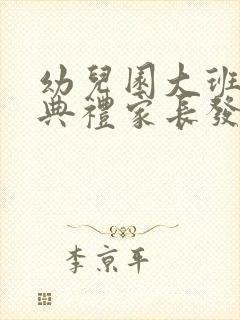 幼兒園大班
典禮家長發
李京平